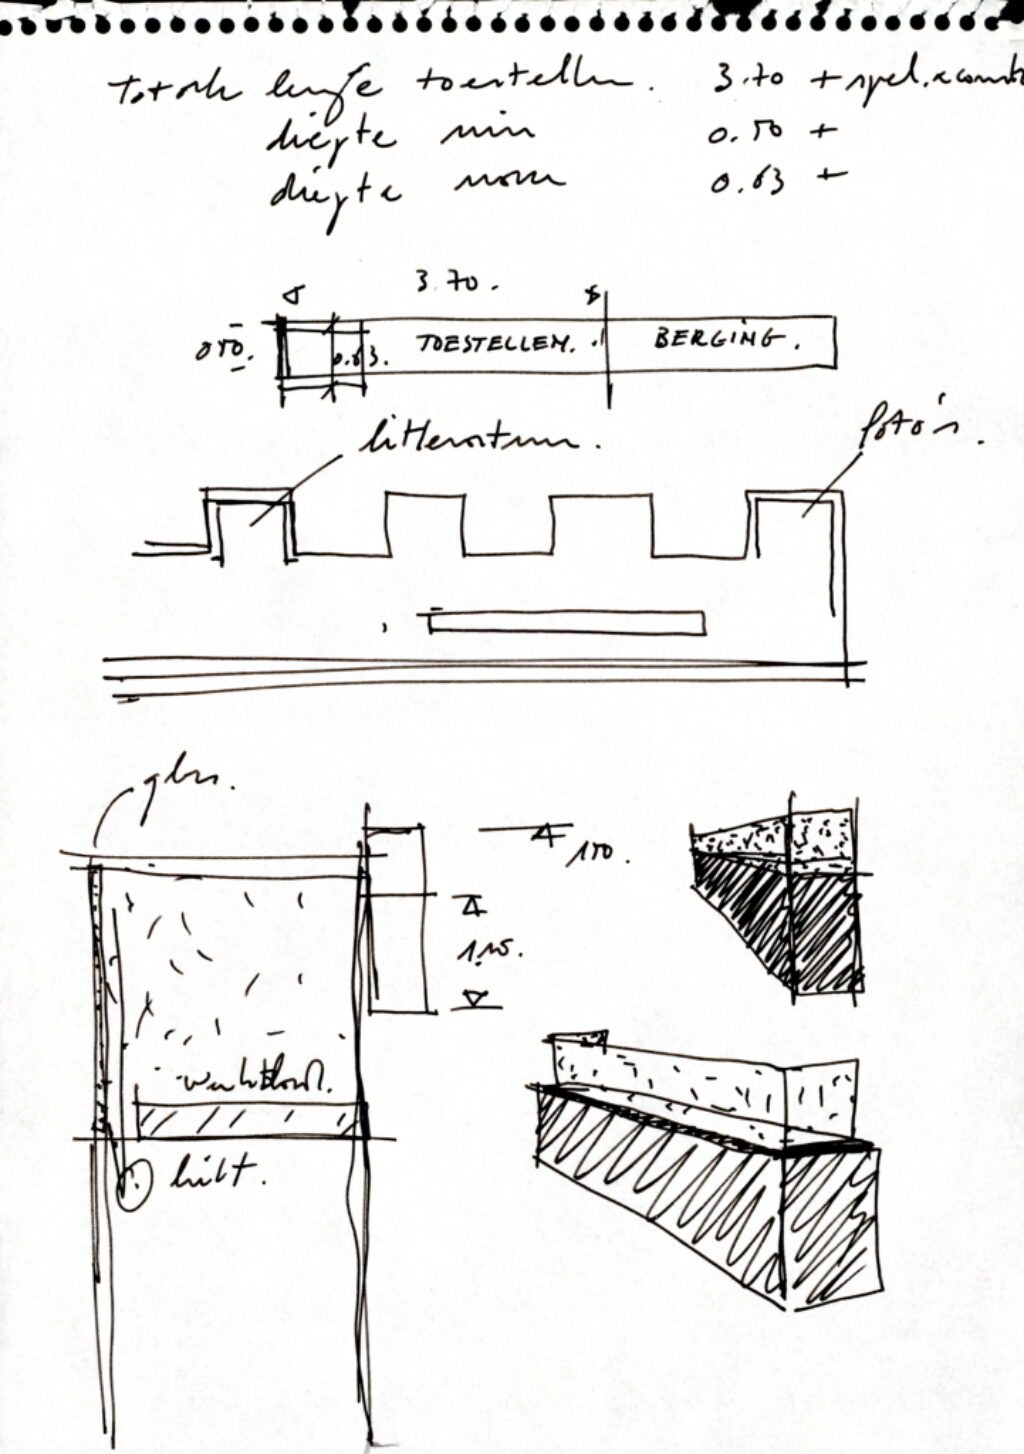 Totale lengte toestellen. 3.70 + spel.
diepte min 0.50 +
diepte norm 0.63 +
3.70.
0.50. 0.63. TOESTELLEN. BERGING.
litteratuur. foto's.
glas.
1.50.
werkblad.
licht.